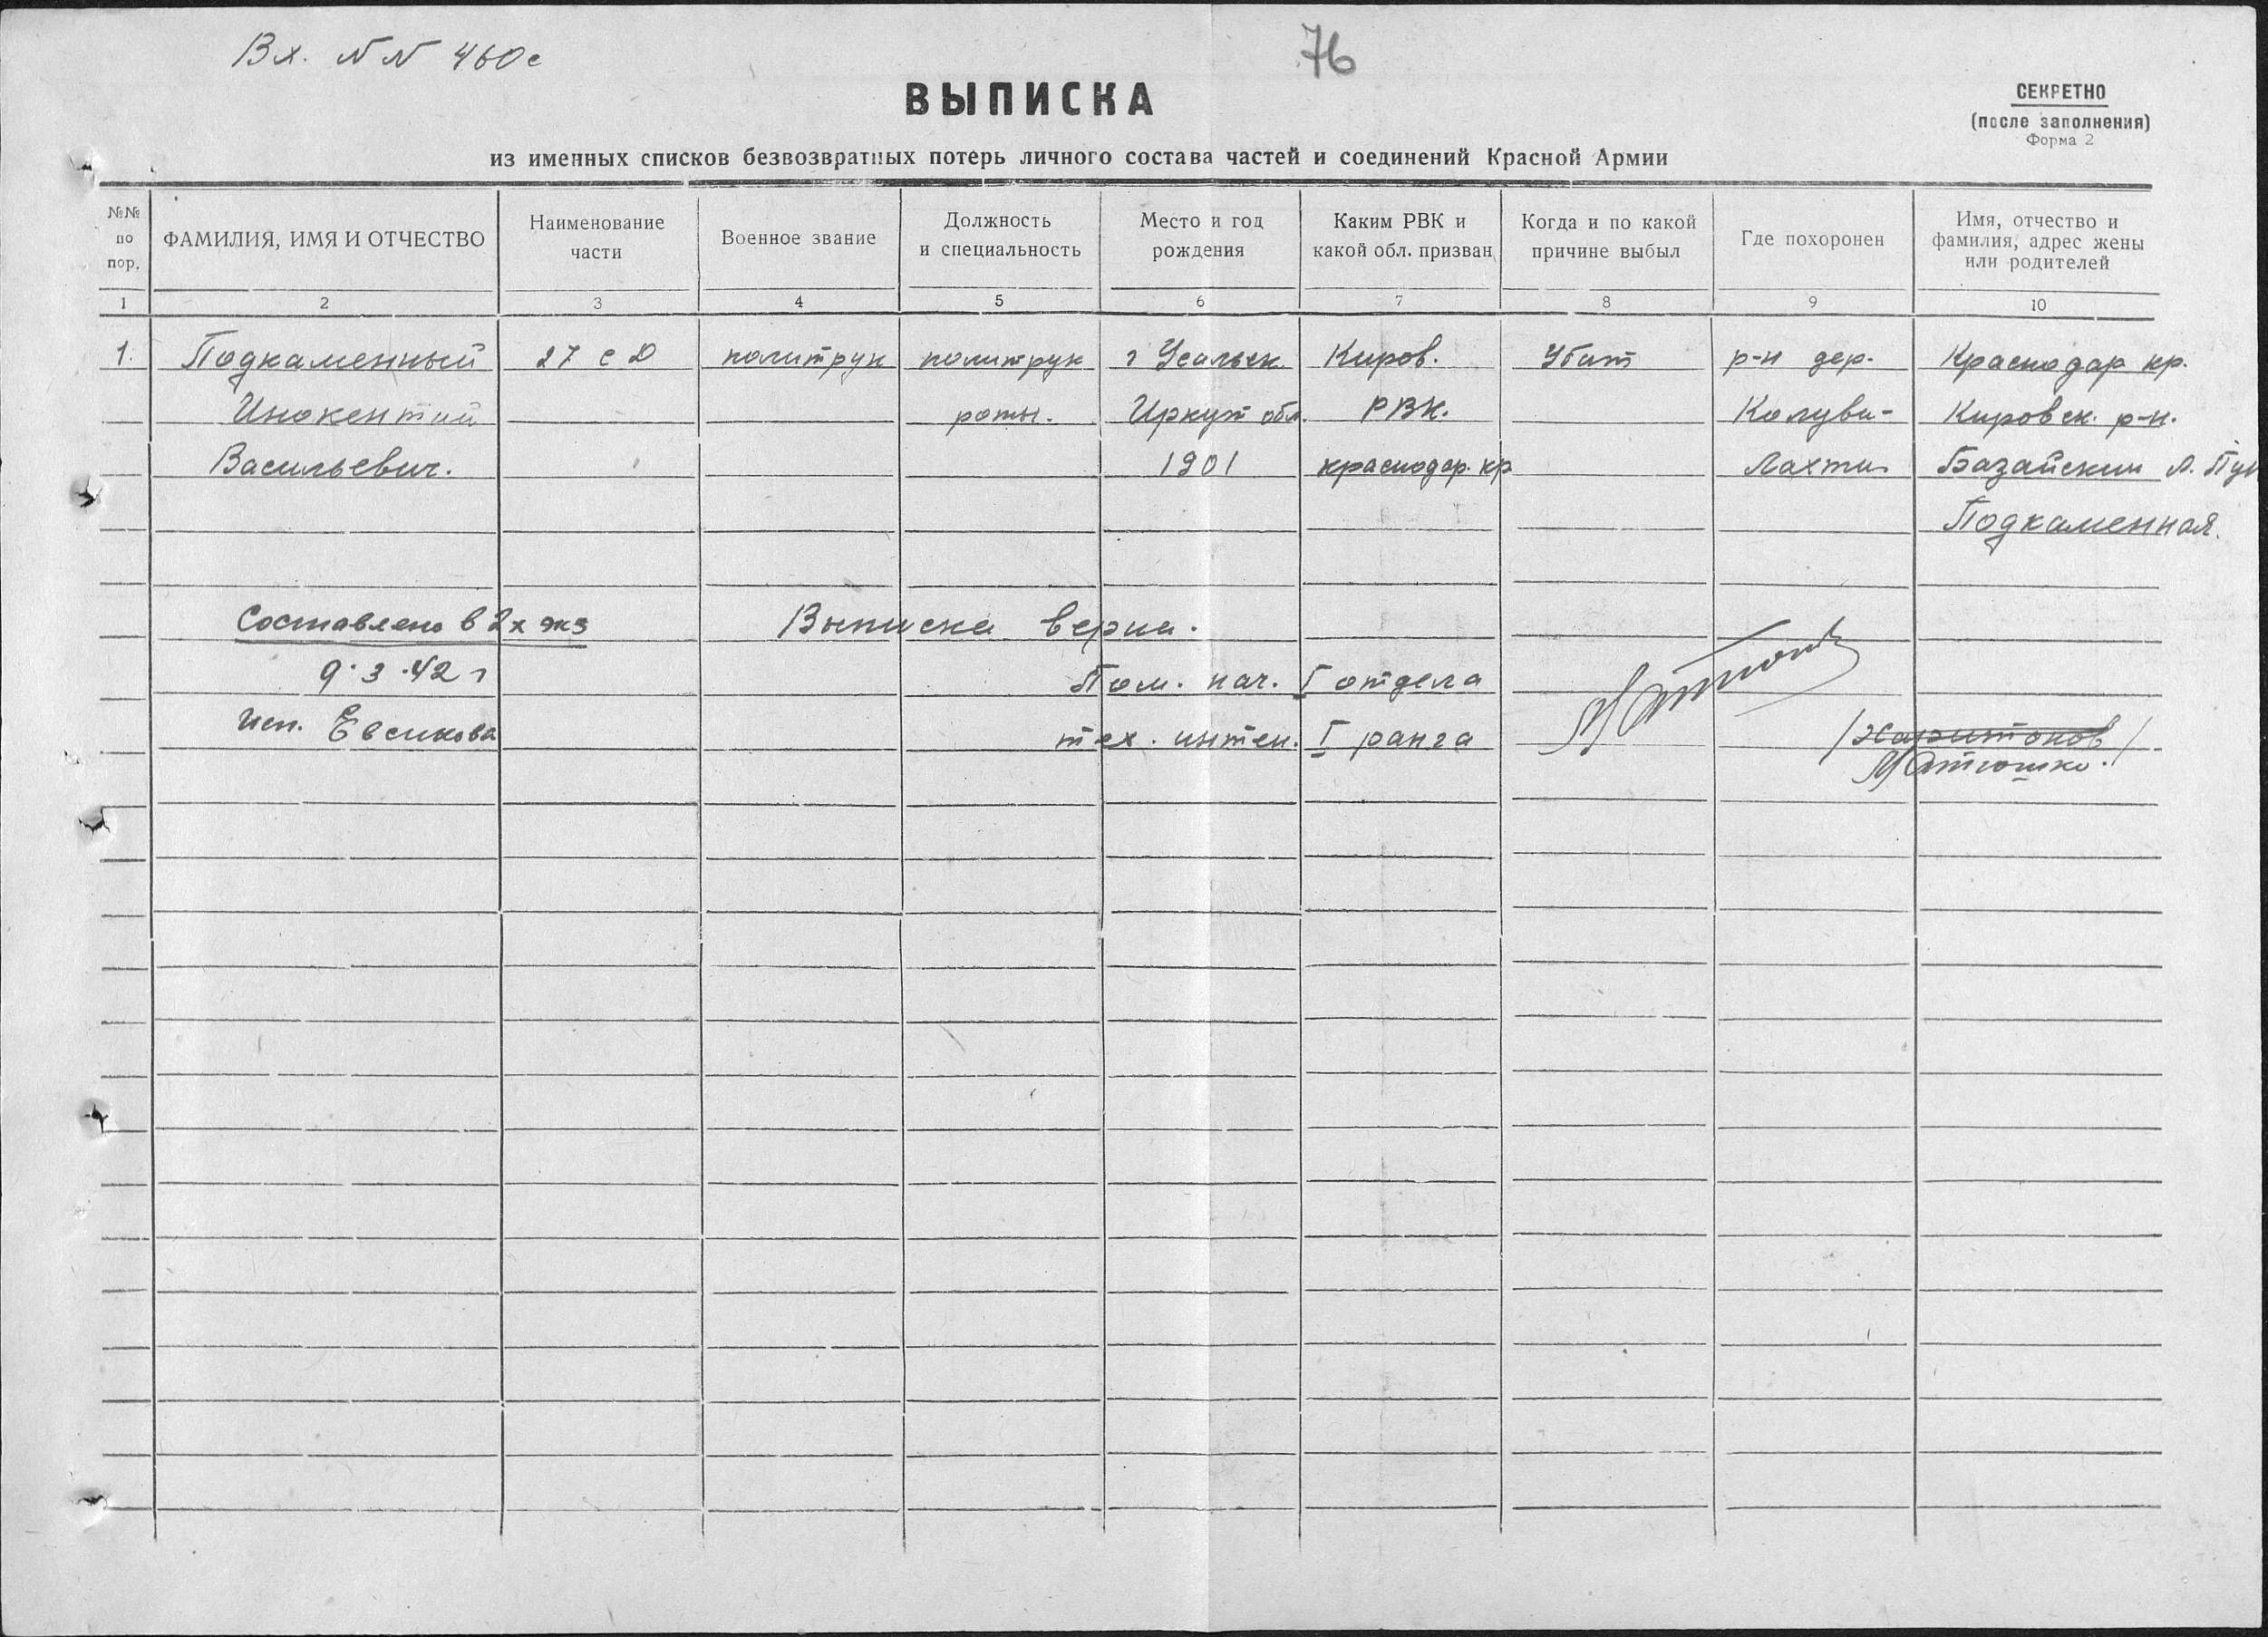 Вх. NN 460с
76
ВЫПИСКА
СЕКРЕТНО
(после заполнения)
Форма 2
из именных списков безвозвратных потерь личного состава частей и соединений Красной Армии
№№ по пор. | ФАМИЛИЯ, ИМЯ И ОТЧЕСТВО | Наименование части | Военное звание | Должность и специальность | Место и год рождения | Каким РВК и какой обл. призван | Когда и по какой причине выбыл | Где похоронен | Имя, отчество и фамилия, адрес жены или родителей
1 2 3 4 5 6 7 8 9 10
1. Подкаменный 27 сД политрук политрук г Усальск. Киров. Убит р-н дер. Краснодар кр.
Инокентий роты. Иркут обл. РВК. Колуви- Кировск. р-н.
Васильевич. 1901 краснодар. кр Лахти Базайский Л. Пун
Подкаменная.
Составлено в 2х экз Выписка верна.
9.3.42 г Пом. нач. I отдела
исп. Евсикова тех. интен. I ранга /Харитонов/
Матюшко.